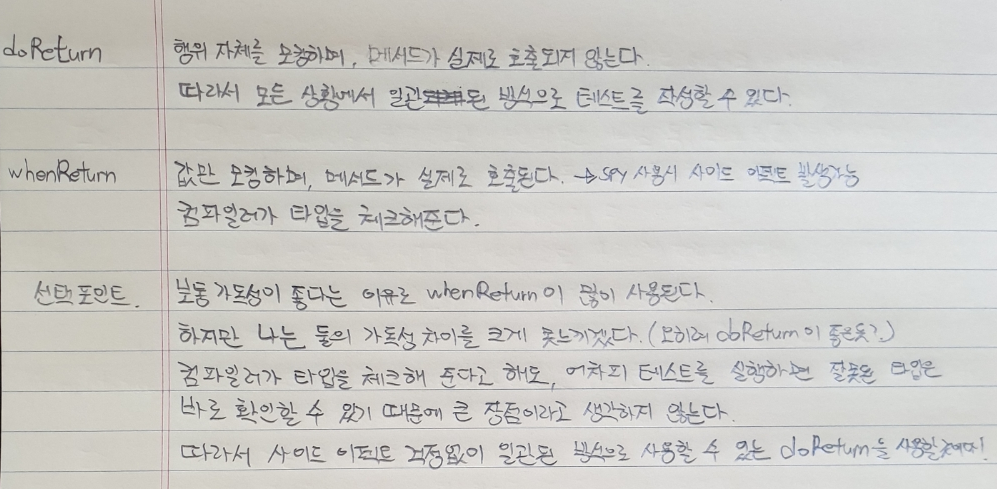 doReturn 행위 자체를 모킹하며, 메서드가 실제로 호출되지 않는다.
따라서 모든 상황에서 일관된 방식으로 테스트를 작성할 수 있다.
whenReturn 값만 모킹하며, 메서드가 실제로 호출된다. → SPY 사용시 사이드 이펙트 발생가능
컴파일러가 타입을 체크해준다.
선택 포인트. 보통 가독성이 좋다는 이유로 whenReturn이 많이 사용된다.
하지만 나는 둘의 가독성 차이를 크게 못느끼겠다. (오히려 doReturn이 좋은듯?)
컴파일러가 타입을 체크해 준다고 해도, 어차피 테스트를 실행하면 잘못된 타입은
바로 확인할 수 있기 때문에 큰 장점이라고 생각하지 않는다.
따라서 사이드 이펙트 걱정없이 일관된 방식으로 사용할 수 있는 doReturn을 사용할